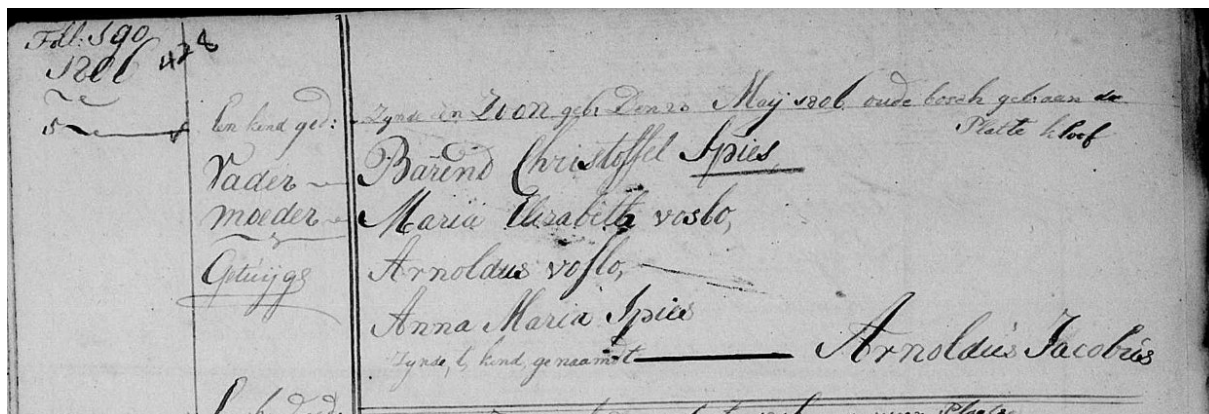 Foll: 190
1806 428
5
Een kend ged: Zynde en Zoon geb: Den 20 Maÿ 1806 oude bosch gebraan de
Platte kloof
Vader Barend Christoffel Spies,
moeder Maria Elizabeth voslo,
Getuÿgs Arnoldus voslo,
Anna Maria Spies
Zynde, t, kind, genaamt Arnoldus Jacobus